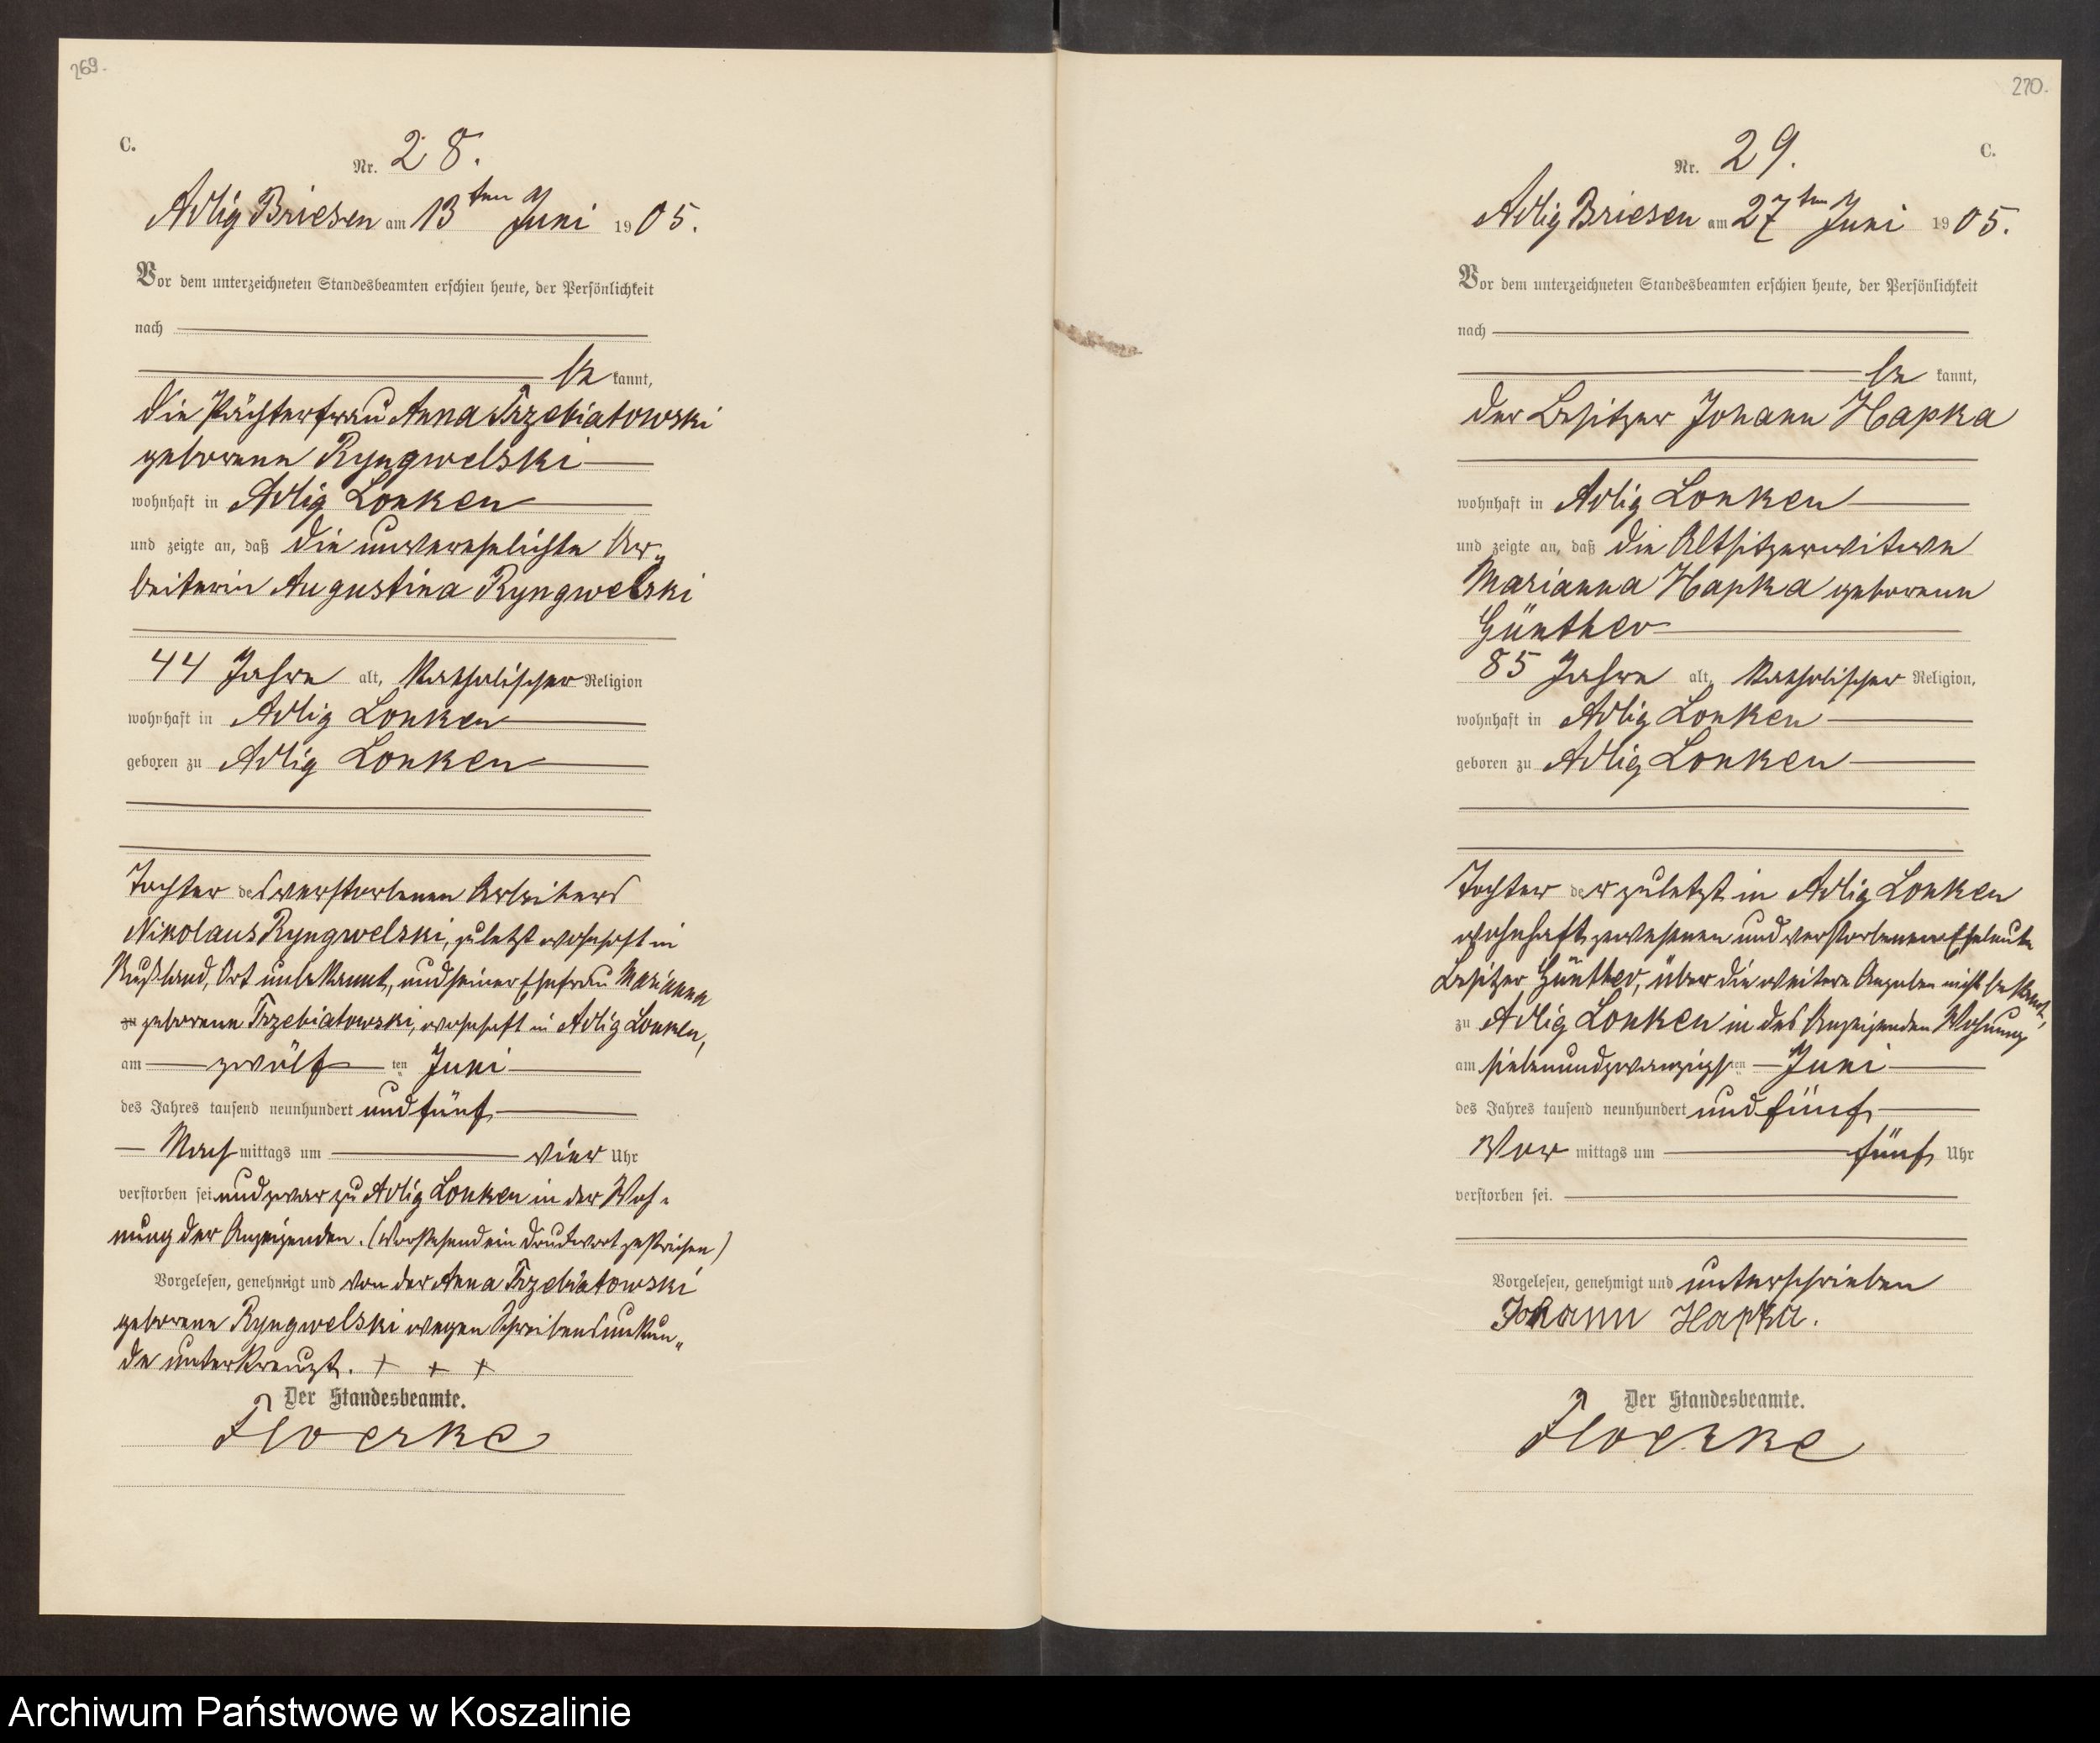 269.
C.
Nr. 28.
Adlig Briesen am 13ten Juni 1905.
Vor dem unterzeichneten Standesbeamten erschien heute, der Persönlichkeit
nach
be kannt,
die Pächterfrau Anna Trzebiatowski
geborene Ryngwelski
wohnhaft in Adlig Lonken
und zeigte an, daß die unverehelichte Ar„
beiterin Augustina Ryngwelski
44 Jahre alt, katholischer Religion
wohnhaft in Adlig Lonken
geboren zu Adlig Lonken
Tochter des verstorbenen Arbeiters
Nikolaus Ryngwelski, zuletzt wohnhaft in
Rußland, Ort unbekannt, und seiner Ehefrau Marianna
zu geborene Trzebiatowski, wohnhaft in Adlig Lonken,
am zwölf ten Juni
des Jahres tausend neunhundert und fünf
Nach mittags um vier Uhr
verstorben sei und zwar zu Adlig Lonken in der Woh„
nung der Anzeigenden. (Vorstehend ein Druckwort gestrichen)
Vorgelesen, genehmigt und von der Anna Trzebiatowski
geborene Ryngwelski wegen Schreibensunkun„
de unterkreuzt. + + +
Der Standesbeamte.
Floerke
270.
C.
Nr. 29.
Adlig Briesen am 27ten Juni 1905.
Vor dem unterzeichneten Standesbeamten erschien heute, der Persönlichkeit
nach
be kannt,
der Besitzer Johann Hapka
wohnhaft in Adlig Lonken
und zeigte an, daß die Altsitzerwitwe
Marianna Hapka geborene
Günther
85 Jahre alt, katholischer Religion,
wohnhaft in Adlig Lonken
geboren zu Adlig Lonken
Tochter der zuletzt in Adlig Lonken
wohnhaft gewesenen und verstorbenen Eheleute
Besitzer Günther, über die weitere Angaben nicht bekannt,
zu Adlig Lonken in des Anzeigenden Wohnung
am siebenundzwanzigsten Juni
des Jahres tausend neunhundert und fünf
Vor mittags um fünf Uhr
verstorben sei.
Vorgelesen, genehmigt und unterschrieben
Johann Hapka.
Der Standesbeamte.
Floerke
Archiwum Państwowe w Koszalinie